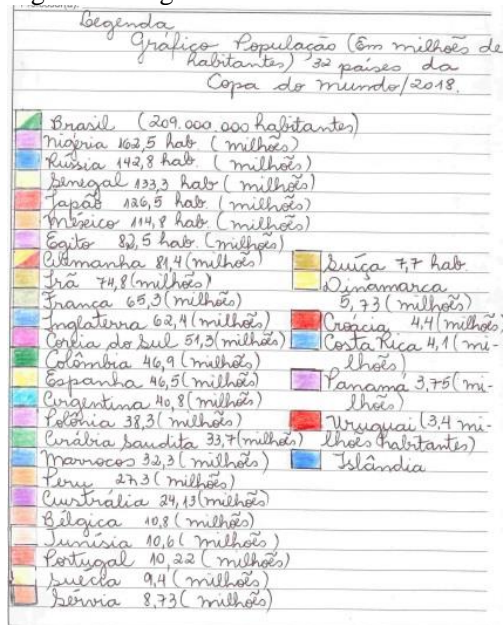 Legenda
Gráfico População (Em milhões de
habitantes) 32 países da
Copa do mundo/2018.
Brasil (209.000.000 habitantes)
Nigéria 162,5 hab. (milhões)
Rússia 142,8 hab. (milhões)
Senegal 133,3 hab (milhões)
Japão 126,5 hab. (milhões)
México 114,8 hab. (milhões)
Egito 82,5 hab. (milhões)
Alemanha 81,4 (milhões)
Irã 74,8 (milhões)
França 65,3 (milhões)
Inglaterra 62,4 (milhões)
Coreia do Sul 51,3 (milhões)
Colômbia 46,9 (milhões)
Espanha 46,5 (milhões)
Argentina 40,8 (milhões)
Polônia 38,3 (milhões)
Arábia Saudita 33,7 (milhões)
Marrocos 32,3 (milhões)
Peru 27,3 (milhões)
Austrália 24,13 (milhões)
Bélgica 10,8 (milhões)
Tunísia 10,6 (milhões)
Portugal 10,22 (milhões)
Suécia 9,4 (milhões)
Sérvia 8,73 (milhões)
Suíça 7,7 hab.
Dinamarca
5,73 (milhões)
Croácia 4,4 (milhões)
Costa Rica 4,1 (mi-
lhões)
Panamá 3,75 (mi-
lhões)
Uruguai (3,4 mi-
lhões habitantes)
Islândia